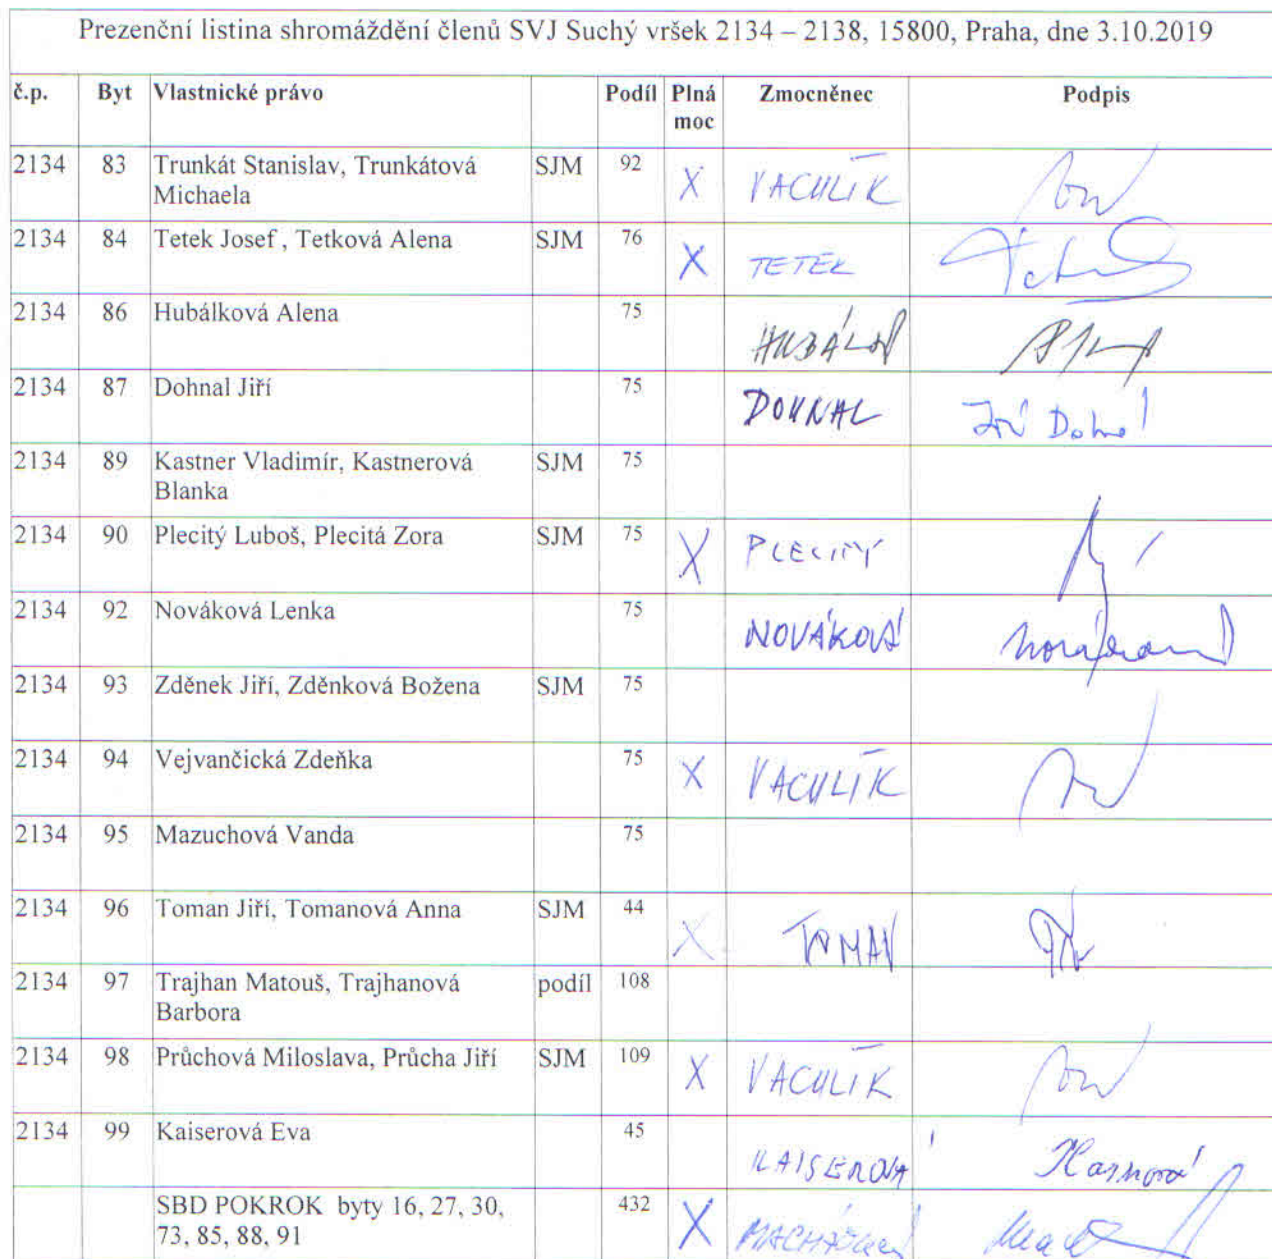 Prezenční listina shromáždění členů SVJ Suchý vršek 2134 – 2138, 15800, Praha, dne 3.10.2019
č.p. Byt Vlastnické právo Podíl Plná moc Zmocněnec Podpis
2134 83 Trunkát Stanislav, Trunkátová SJM 92 X VACULÍK
Michaela
2134 84 Tetek Josef , Tetková Alena SJM 76 X TETEK
2134 86 Hubálková Alena 75
2134 87 Dohnal Jiří 75 DOHNAL Jiří Dohnal
2134 89 Kastner Vladimír, Kastnerová SJM 75
Blanka
2134 90 Plecitý Luboš, Plecitá Zora SJM 75 X PLECITÝ
2134 92 Nováková Lenka 75 NOVÁKOVÁ Nováková
2134 93 Zděnek Jiří, Zděnková Božena SJM 75
2134 94 Vejvančická Zdeňka 75 X VACULÍK
2134 95 Mazuchová Vanda 75
2134 96 Toman Jiří, Tomanová Anna SJM 44 X TOMAN
2134 97 Trajhan Matouš, Trajhanová podíl 108
Barbora
2134 98 Průchová Miloslava, Průcha Jiří SJM 109 X VACULÍK
2134 99 Kaiserová Eva 45 KAISEROVÁ
SBD POKROK byty 16, 27, 30, 432 X
73, 85, 88, 91